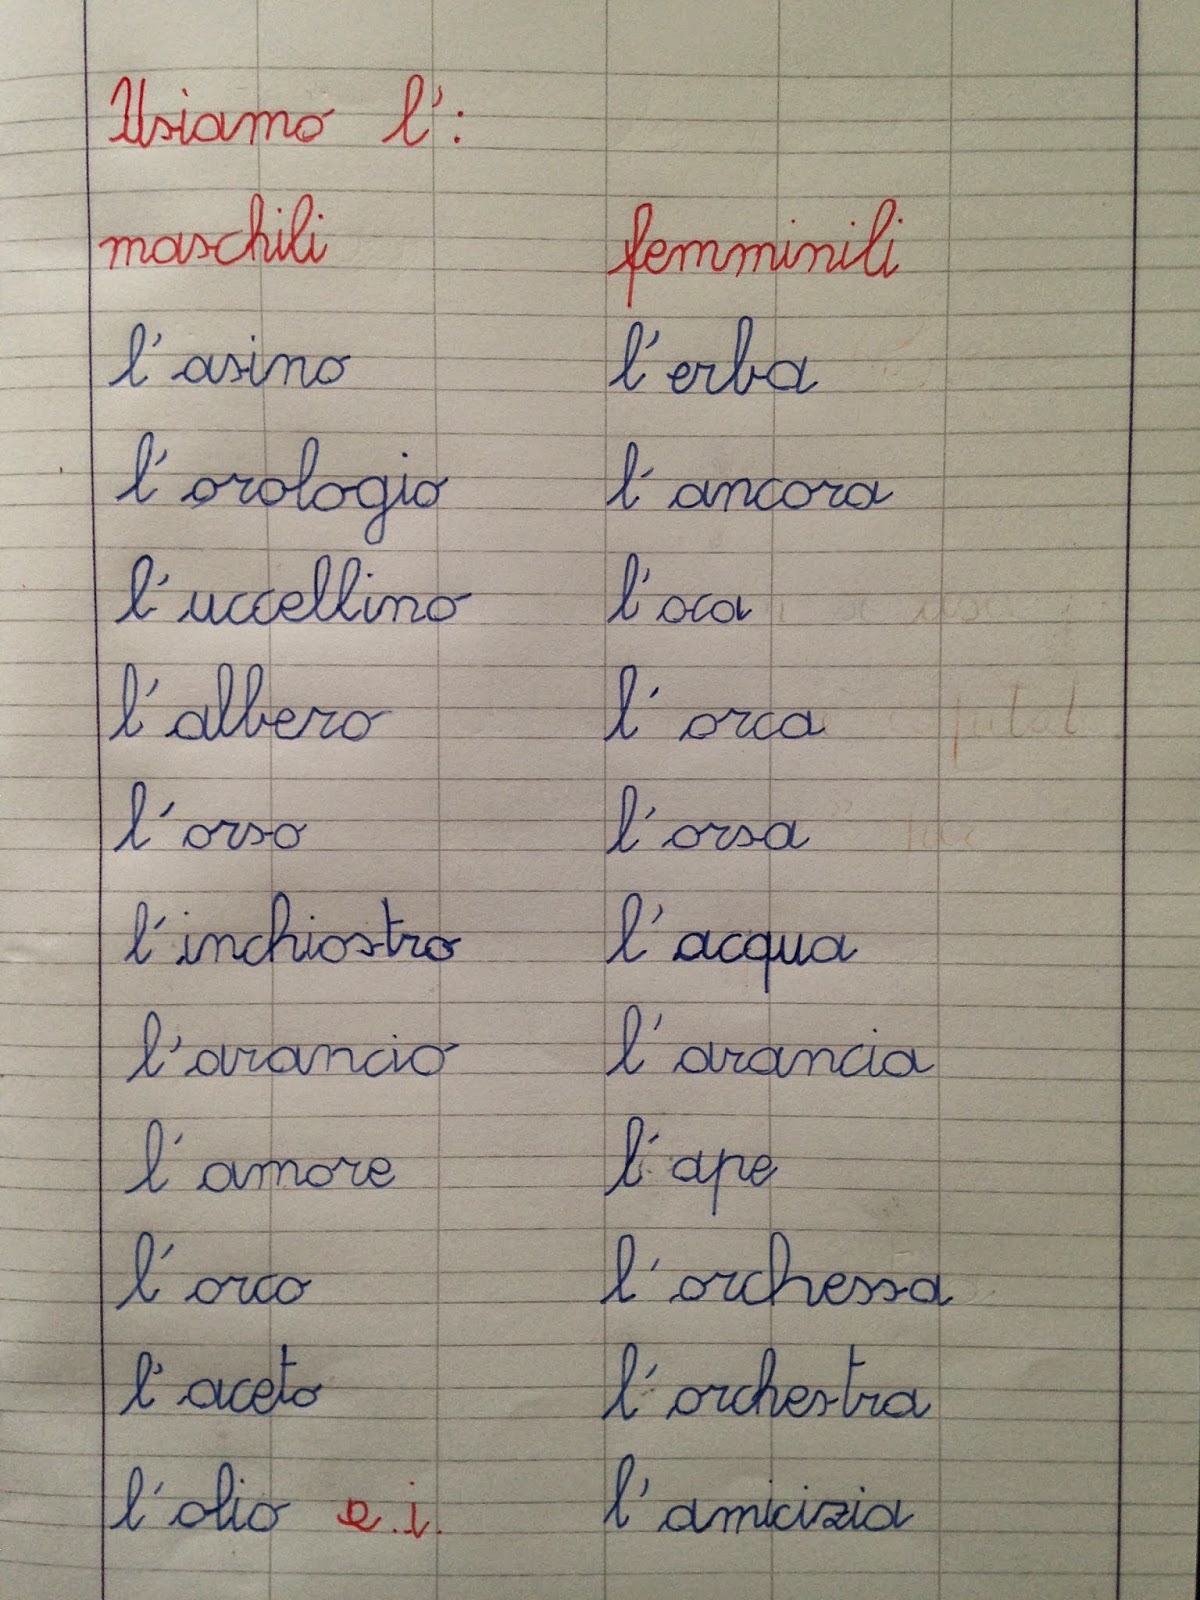 Usiamo l':
maschili femminili
l'asino l'erba
l'orologio l'ancora
l'uccellino l'oca
l'albero l'orca
l'orso l'orsa
l'inchiostro l'acqua
l'arancio l'arancia
l'amore l'ape
l'orco l'orchessa
l'aceto l'orchestra
l'olio e.i. l'amicizia